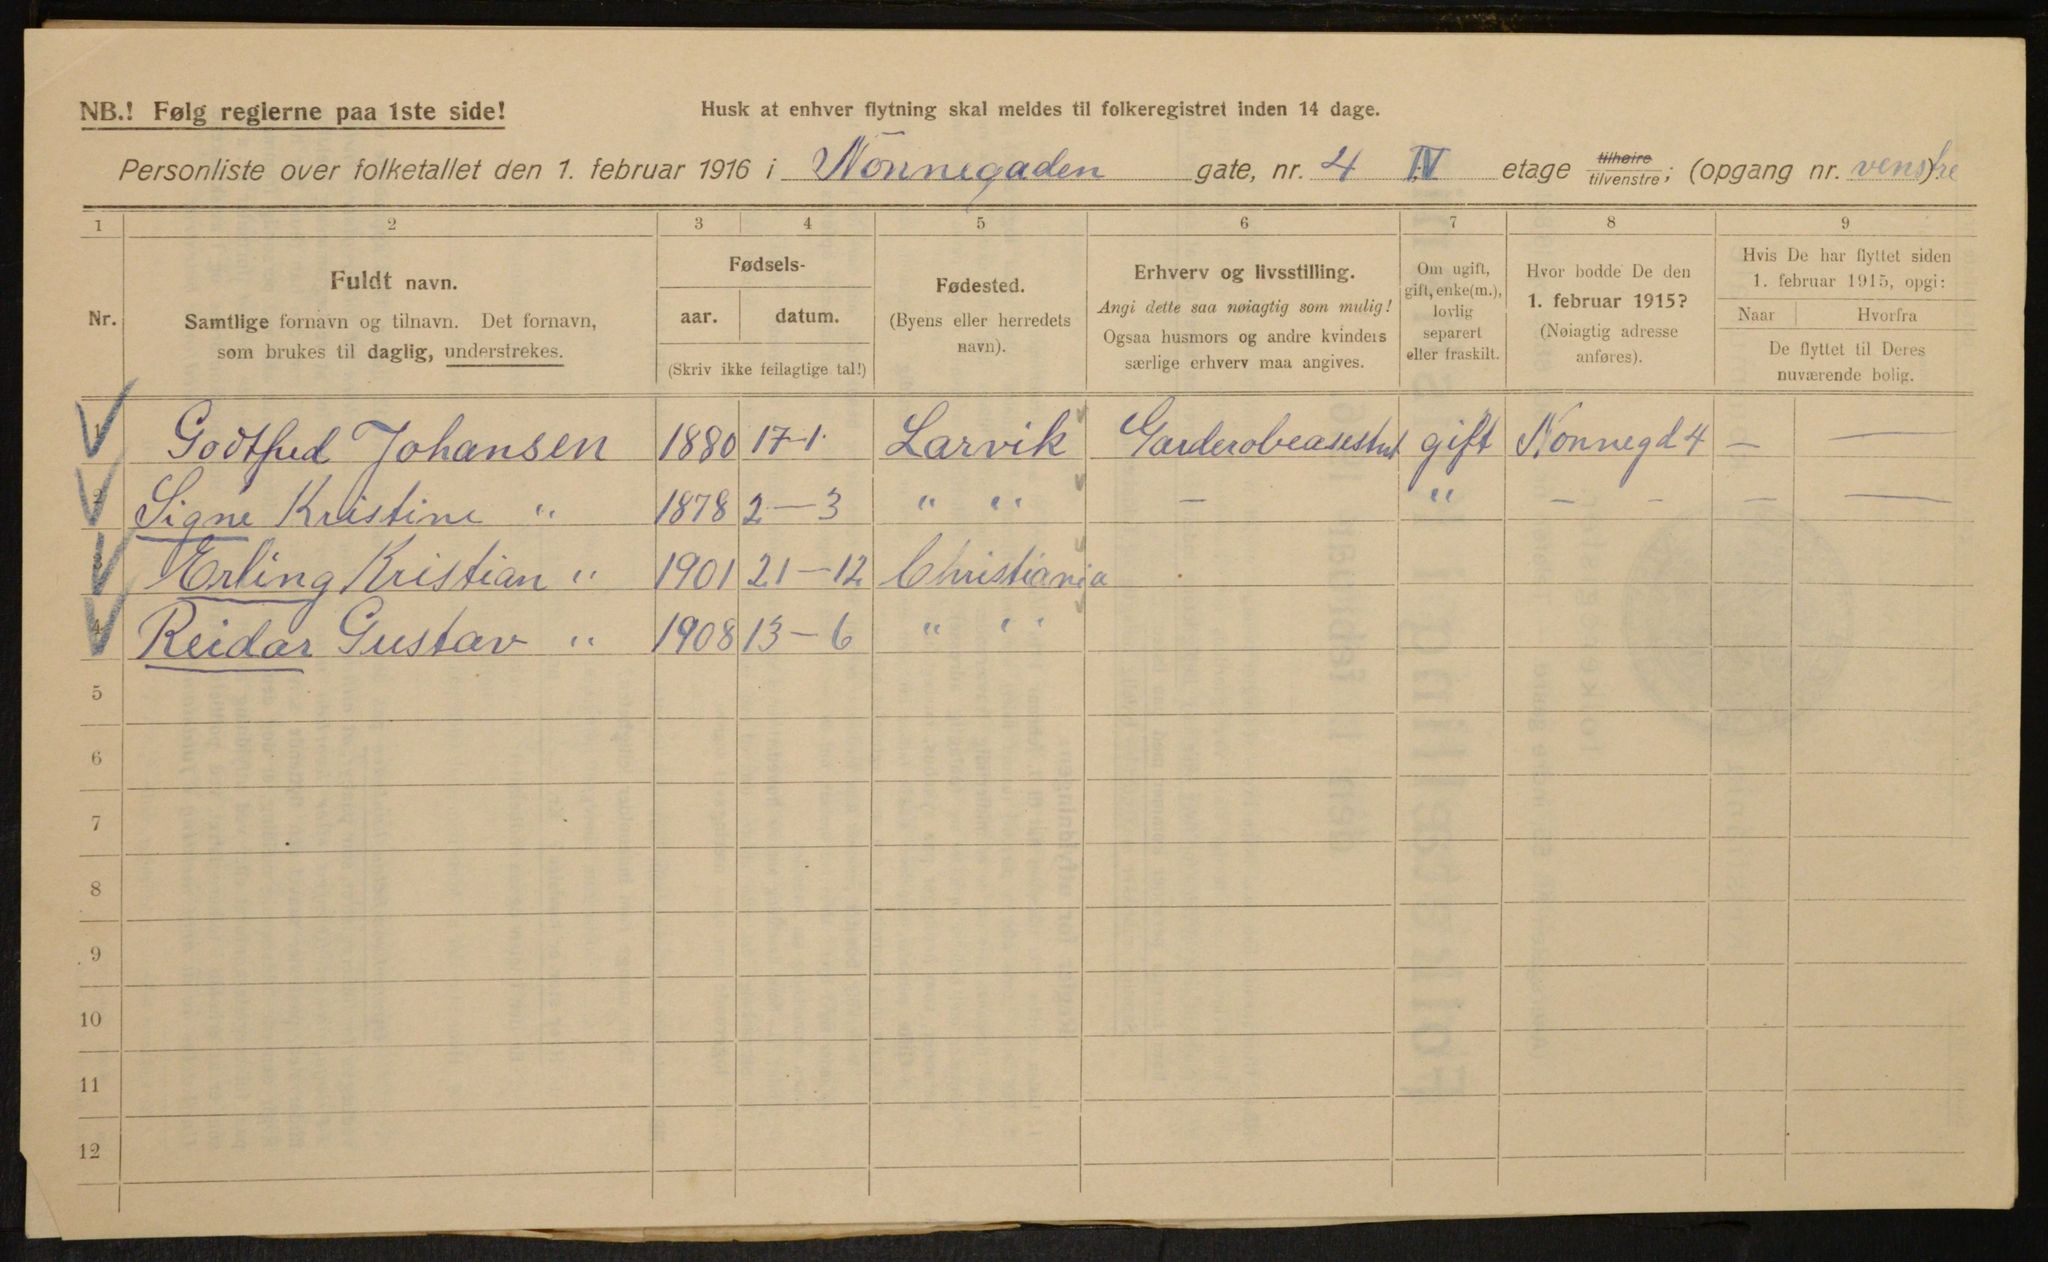 NB.! Følg reglerne paa 1ste side!
Husk at enhver flytning skal meldes til folkeregistret inden 14 dage.
Personliste over folketallet den 1. februar 1916 i Nonnegaden gate, nr. 4 IV etage tilhøire tilvenstre; (opgang nr. venstre)
1 2 3 4 5 6 7 8 9
Nr.
Fuldt navn.
Samtlige fornavn og tilnavn. Det fornavn,
som brukes til daglig, understrekes.
Fødsels-
aar. datum.
(Skriv ikke feilagtige tal!)
Fødested.
(Byens eller herredets
navn).
Erhverv og livsstilling.
Angi dette saa nøiagtig som mulig!
Ogsaa husmors og andre kvinders
særlige erhverv maa angives.
Om ugift,
gift, enke(m.),
lovlig
separert
eller fraskilt.
Hvor bodde De den
1. februar 1915?
(Nøiagtig adresse
anføres).
Hvis De har flyttet siden
1. februar 1915, opgi:
Naar Hvorfra
De flyttet til Deres
nuværende bolig.
1 Godtfred Johansen 1880 17-1. Larvik gift Nonnegd 4 — —
2 Signe Kristine " 1878 2-3 " " — " — — — —
3 Erling Kristian " 1901 21-12 Christiania
4 Reidar Gustav " 1908 13-6 " "
5
6
7
8
9
10
11
12